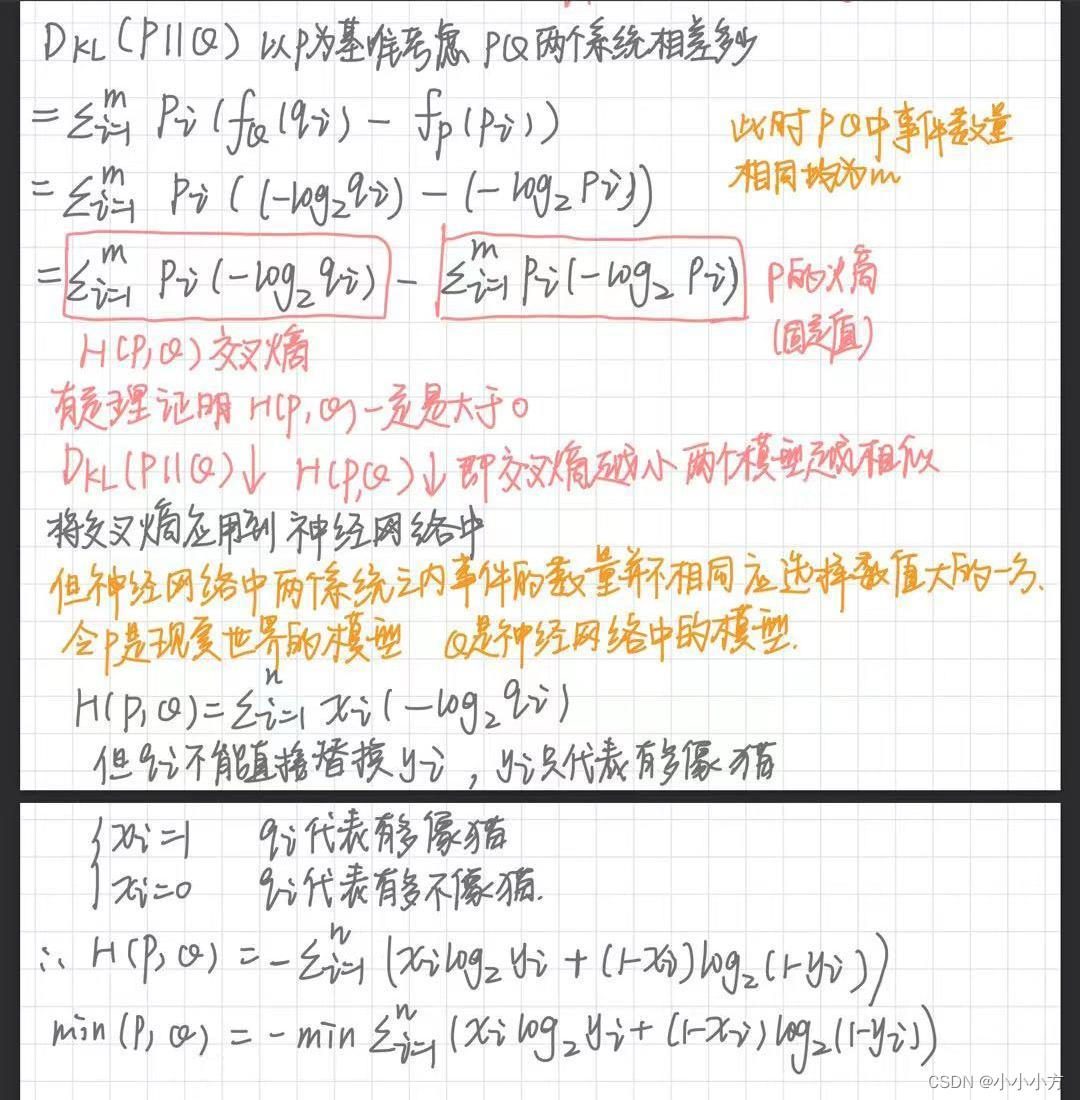 D_KL(P||Q) 以P为基准考虑 PQ两个系统相差多少
= Σ_{i=1}^m p_i (f_Q(q_i) - f_P(p_i))
此时PQ中事件数量
相同均为m
= Σ_{i=1}^m p_i ((-log₂q_i) - (-log₂p_i))
= Σ_{i=1}^m p_i (-log₂q_i) - Σ_{i=1}^m p_i (-log₂p_i) P的熵
(固定值)
H(P,Q)交叉熵
有定理证明 H(P,Q)一定是大于0
D_KL(P||Q)↓ H(P,Q)↓ 即交叉熵越小 两个模型越相似
将交叉熵应用到神经网络中
但神经网络中两个系统之内事件的数量并不相同 应选择数值大的一方.
令P是现实世界的模型 Q是神经网络中的模型.
H(P,Q)=Σ_{i=1}^n x_i(-log₂q_i)
但q_i不能直接替换y_i , y_i只代表有多像猫
{ x_i=1 q_i代表有多像猫
x_i=0 q_i代表有多不像猫.
∴ H(P,Q) = -Σ_{i=1}^n (x_i log₂y_i + (1-x_i)log₂(1-y_i))
min(P,Q) = -min Σ_{i=1}^n (x_i log₂y_i + (1-x_i)log₂(1-y_i))
CSDN @小小小方